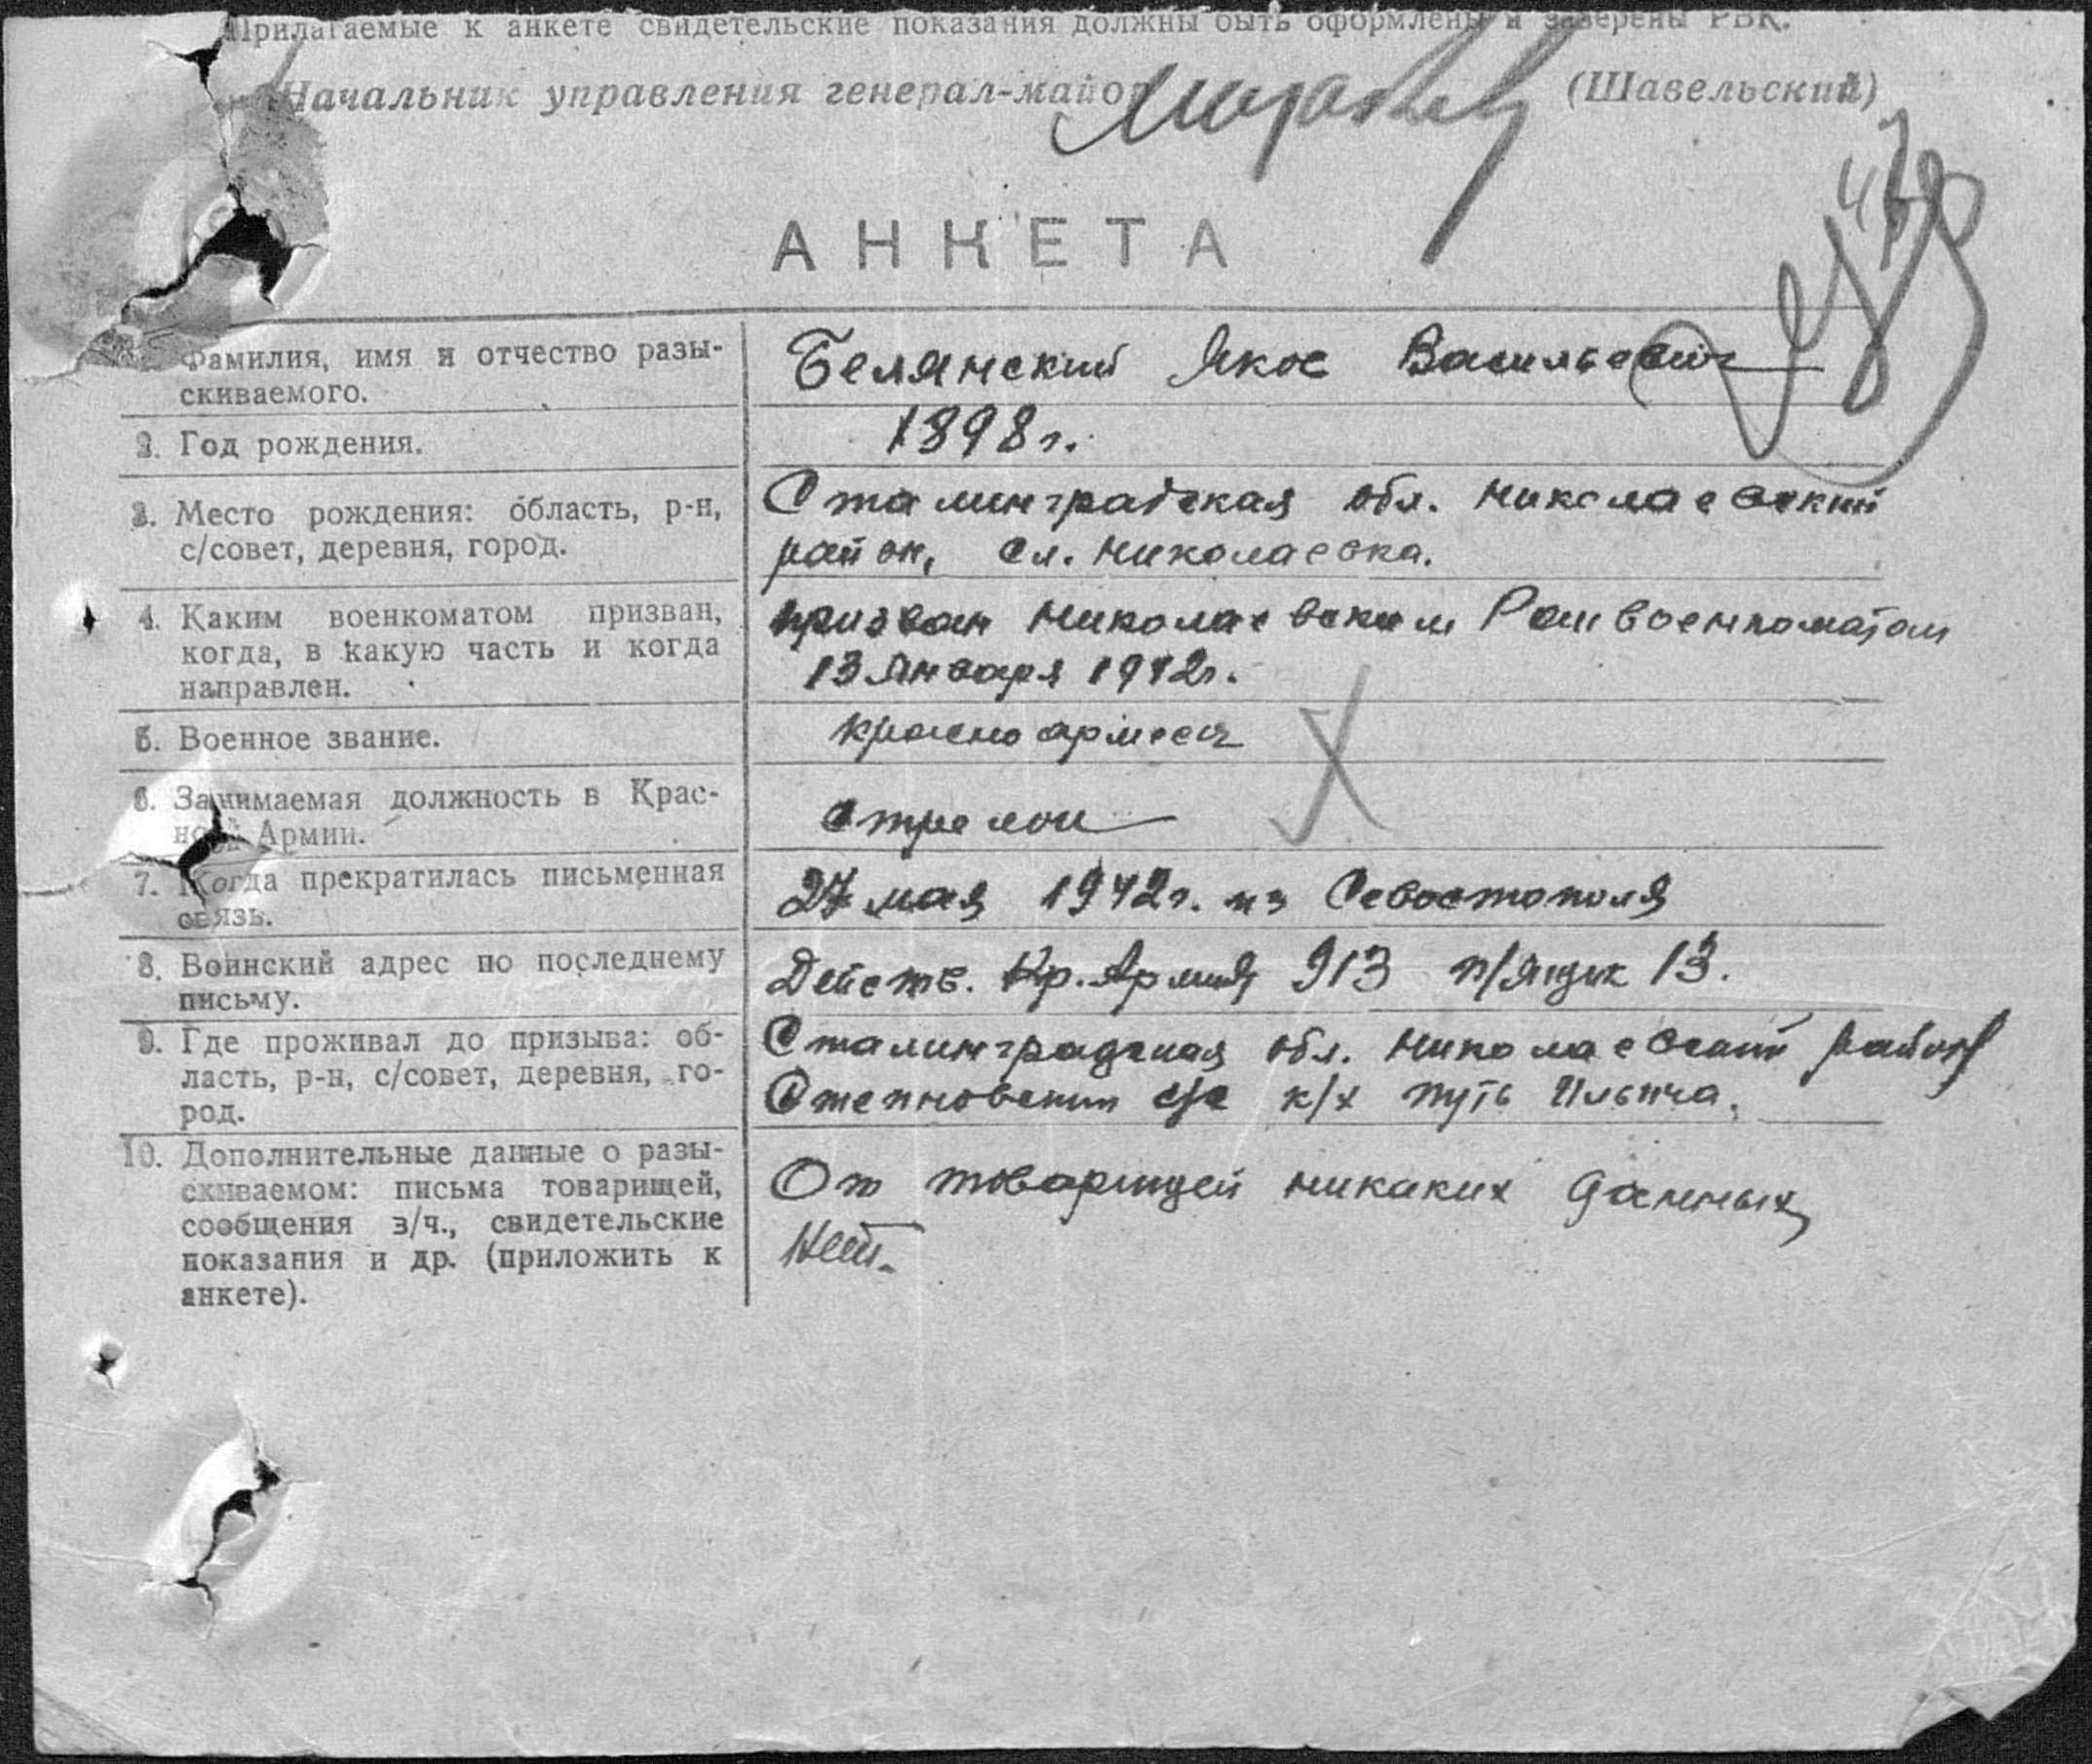 Прилагаемые к анкете свидетельские показания должны быть оформлены и заверены РВК.
Начальник управления генерал-майор (Шавельский)
АНКЕТА
Фамилия, имя и отчество разы-
скиваемого.
Белянский Яков Васильевич
2. Год рождения.
1898 г.
3. Место рождения: область, р-н,
с/совет, деревня, город.
Сталинградская обл. Николаевский
район, сл. Николаевка.
4. Каким военкоматом призван,
когда, в какую часть и когда
направлен.
призван Николаевским Райвоенкоматом
13 января 1942г.
5. Военное звание.
красноармеец
6. Занимаемая должность в Крас-
ной Армии.
стрелок
7. Когда прекратилась письменная
связь.
27 мая 1942г. из Севостополя
8. Воинский адрес по последнему
письму.
Действ. Кр. Армия 913 п/ящик 13.
9. Где проживал до призыва: об-
ласть, р-н, с/совет, деревня, го-
род.
Сталинградская обл. Николаевский район
Степновский с/с к/х Путь Ильича.
10. Дополнительные данные о разы-
скиваемом: письма товарищей,
сообщения з/ч., свидетельские
показания и др. (приложить к
анкете).
От товарищей никаких данных
нет.